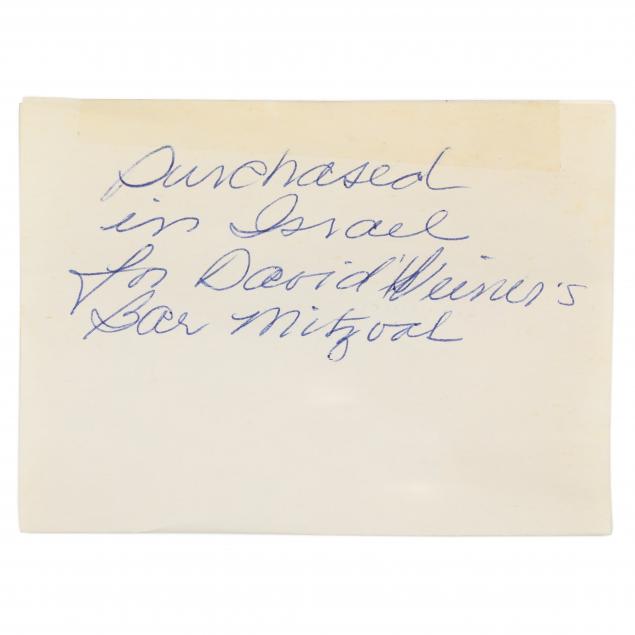 Purchased
in Israel
for David Weiner's
Bar Mitzvah